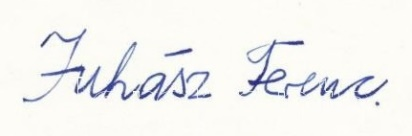 Juhász Ferenc.